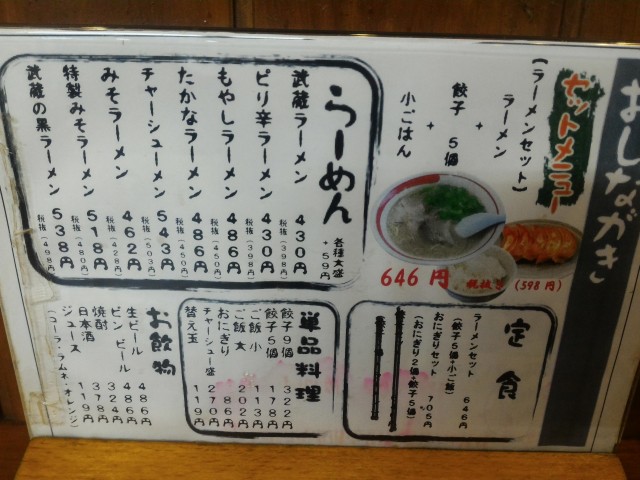 おしながき
セットメニュー
(ラーメンセット)
ラーメン
+
餃子 5個
+
小ごはん
646円
税抜き (598円)
らーめん
各種大盛
+59円
武蔵ラーメン 430円
税抜(398円)
ピリ辛ラーメン 430円
税抜(398円)
もやしラーメン 486円
税抜(450円)
たかなラーメン 486円
税抜(450円)
チャーシューメン 543円
税抜(503円)
みそラーメン 462円
税抜(428円)
特製みそラーメン 518円
税抜(480円)
武蔵の黒ラーメン 538円
税抜(498円)
定食
ラーメンセット 646円
(餃子5個+小ご飯)
おにぎりセット 705円
(おにぎり2個+餃子5個)
単品料理
餃子9個 322円
餃子5個 178円
ご飯 小 113円
ご飯 大 202円
おにぎり 86円
チャーシュー盛 270円
替え玉 119円
お飲物
生ビール 486円
ビン ビール 486円
焼酎 324円
日本酒 378円
ジュース 119円
(コーラ・ラムネ・オレンジ)